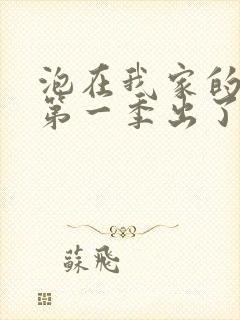 泡在我家的
第一季出了
蘇飛